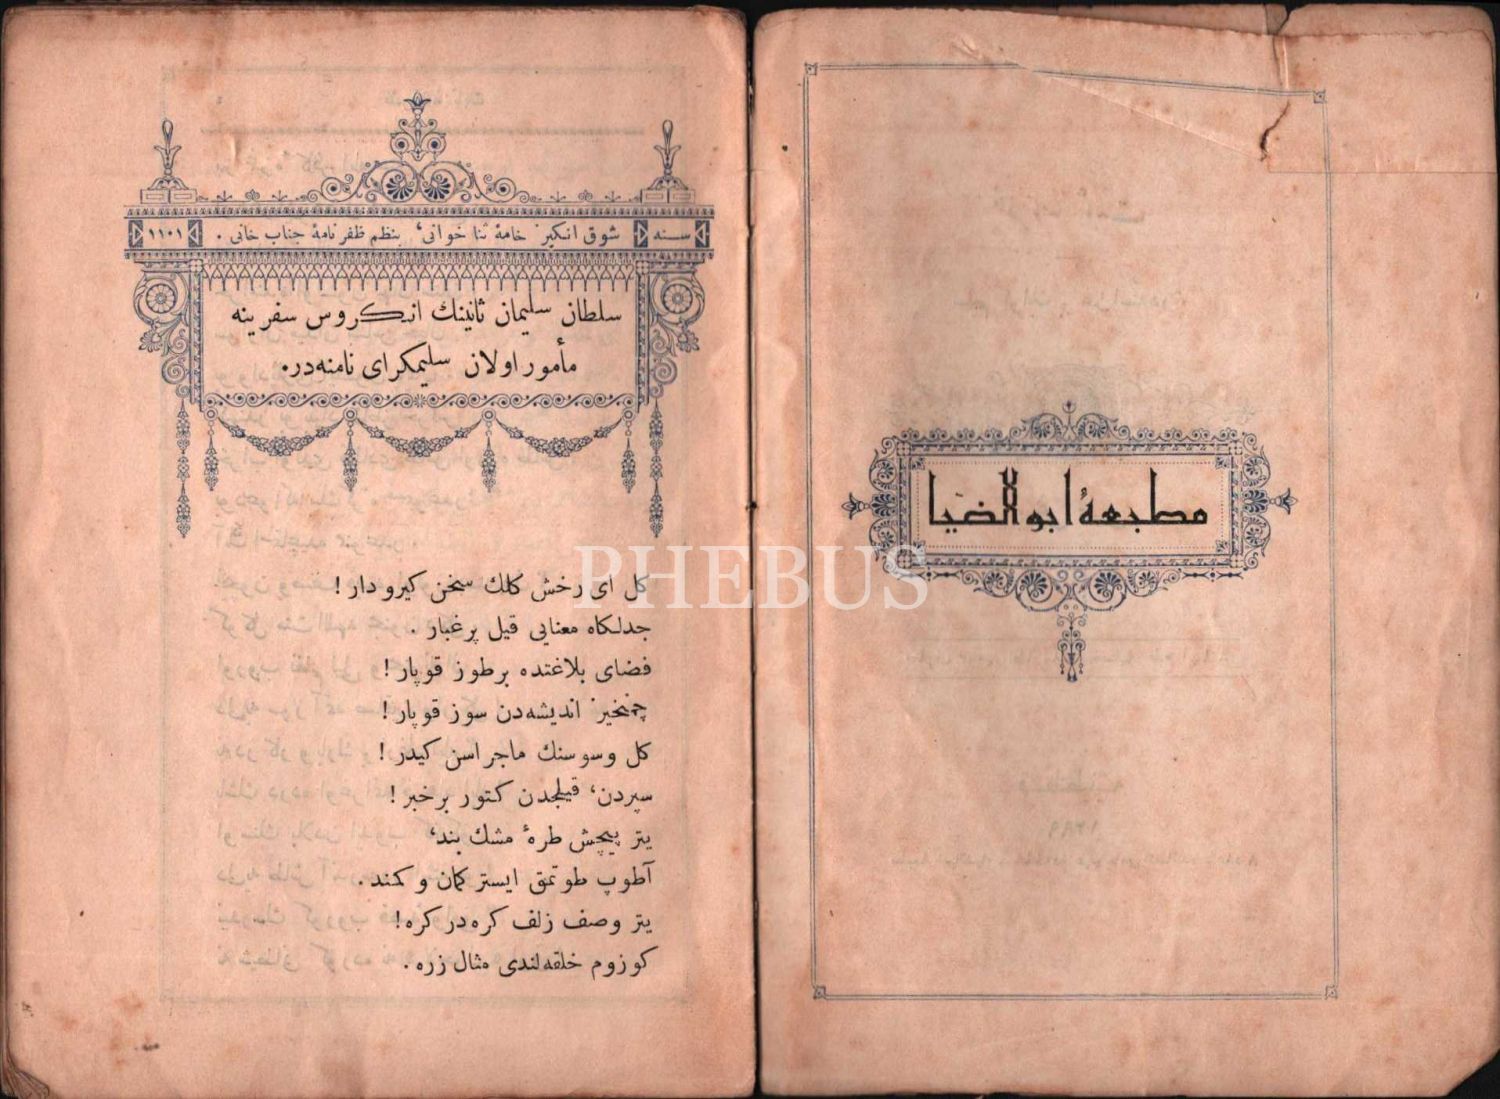 مطبعهٔ ابوالضیا
سنه ١١٠١ شوق انكیز خامهٔ ثنا خوانی، بنظم ظفرنامهٔ جناب خانی .
سلطان سلیمان ثانینك انكروس سفرینه
مأمور اولان سلیمكرای نامنه‌در.
كل ای رخش كلك سخن كیرو دار !
جدلكاه معنایی قیل پرغبار .
فضای بلاغتده برطوز قوپار !
چمنخیز اندیشه‌دن سوز قوپار !
كل وسوسنك ماجراسن كیدر !
سپردن، قیلجدن كتور برخبر !
یتر پیچش طرهٔ مشك بند،
آطوپ طوتمق ایستر كمان و كمند .
یتر وصف زلف كره در كره !
كوزوم حلقه‌لندی مثال زره .
PHEBUS